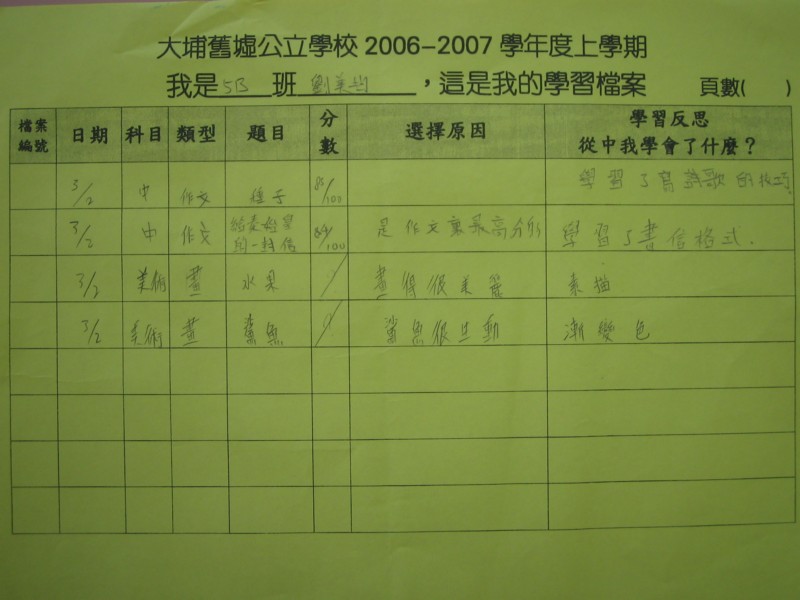 大埔舊墟公立學校 2006-2007 學年度上學期
我是 5B 班 劉美 ，這是我的學習檔案 頁數( )
檔案編號 日期 科目 類型 題目 分數 選擇原因 學習反思 從中我學會了什麼？
3/2 中 作文 種子 /100 學習了寫詩歌的技巧
3/2 中 作文 給表姐 的一封信 89/100 是作文裏最高分 學習了書信格式.
3/2 美術 畫 水果 / 畫得很美麗 素描
3/2 美術 畫 鯊魚 / 鯊魚很生動 漸變色